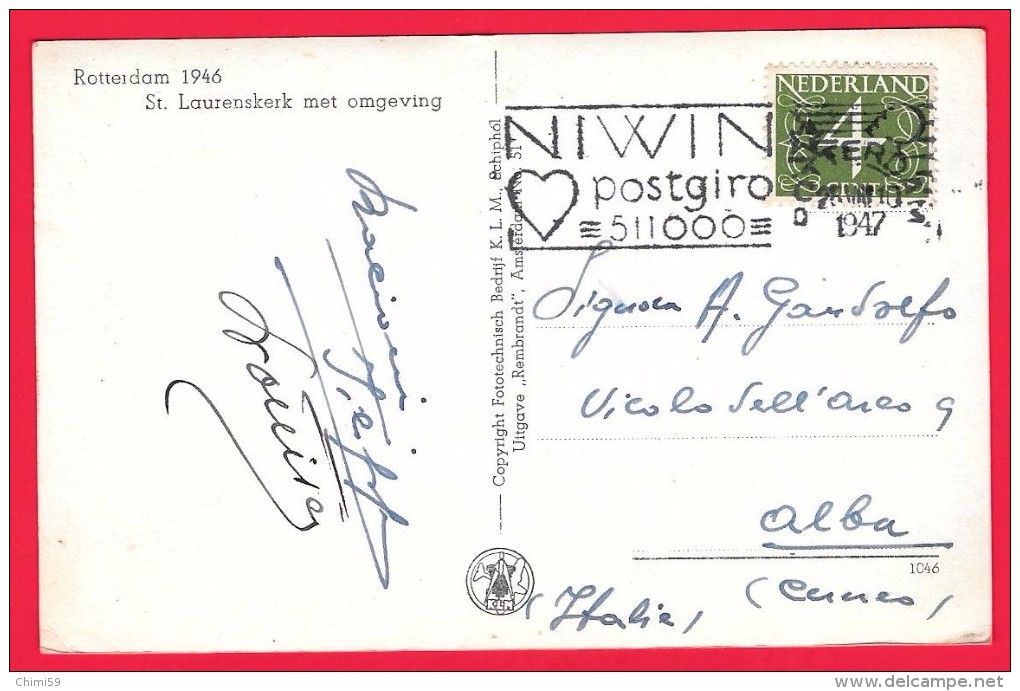 Rotterdam 1946
St. Laurenskerk met omgeving
NEDERLAND
4
CENT
NIWIN
postgiro
511000
1947
Copyright Fototechnisch Bedrijf K. L. M., Schiphol
Uitgave „Rembrandt", Amsterdam
Signora A. Gandolfo
Vicolo dell'Arco 9
Alba
1046
(Cuneo)
(Italie)
KLM
Bacioni
Chimi59
www.delcampe.net